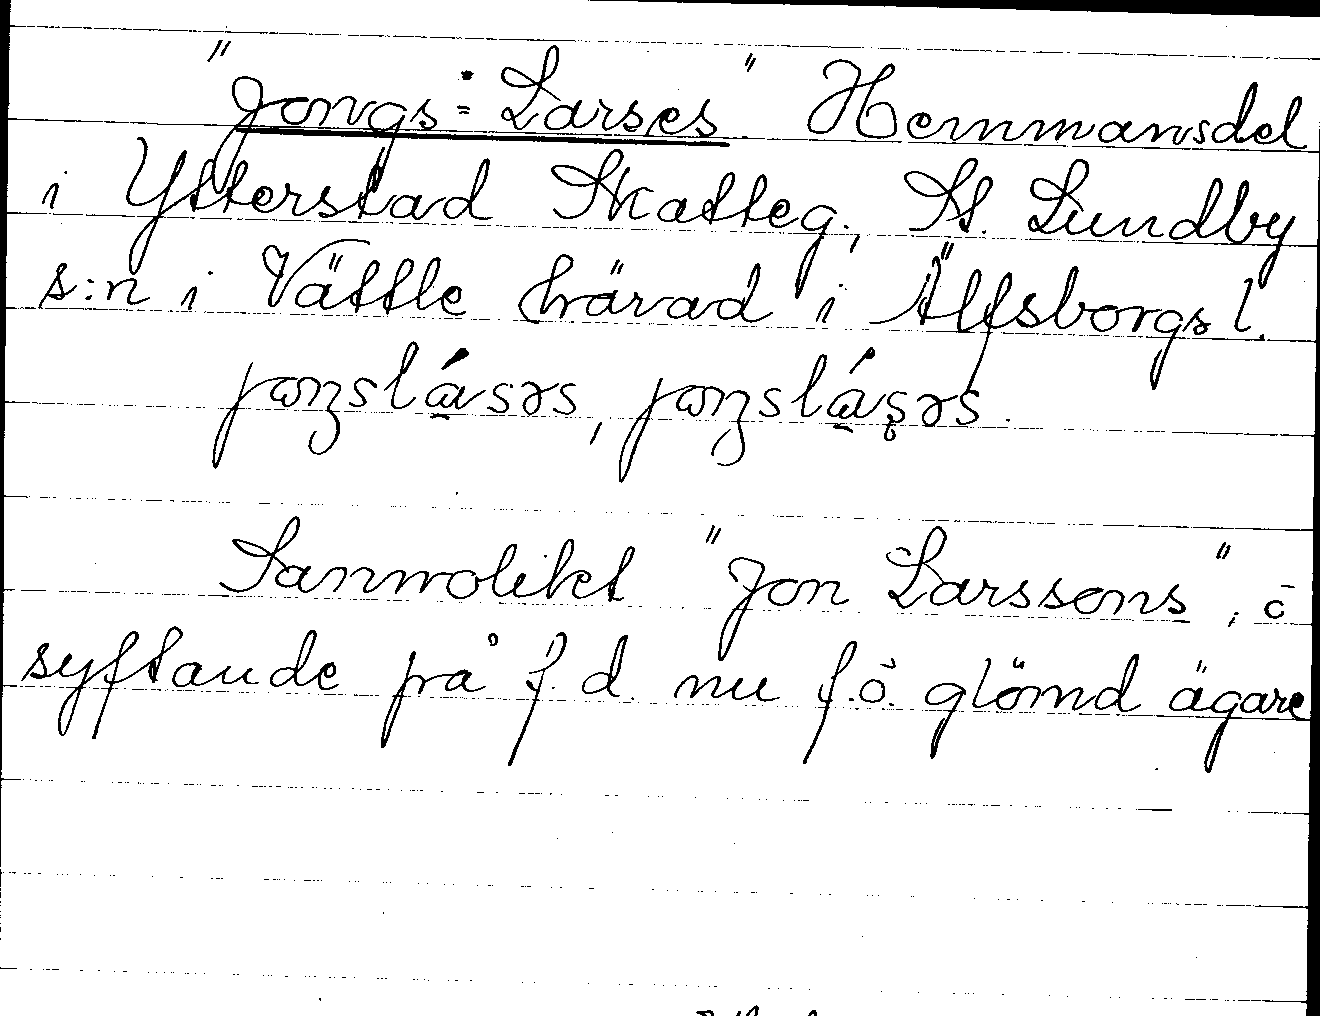 "Jongs-Larses" Hemmansdel
i Ytterstad Skatteg., St. Lundby
s:n i Vättle härad i Älfsborgs l.
jaŋslásəs, jaŋslásəs.
Sannolikt "Jon Larssons", ö
syftande på f. d. nu f.ö. glömd ägare